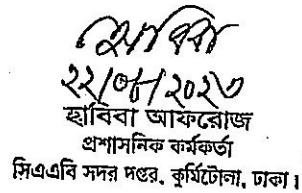 ২২/০৮/২০২৩
হাবিবা আফরোজ
প্রশাসনিক কর্মকর্তা
সিএএবি সদর দপ্তর, কুর্মিটোলা, ঢাকা।